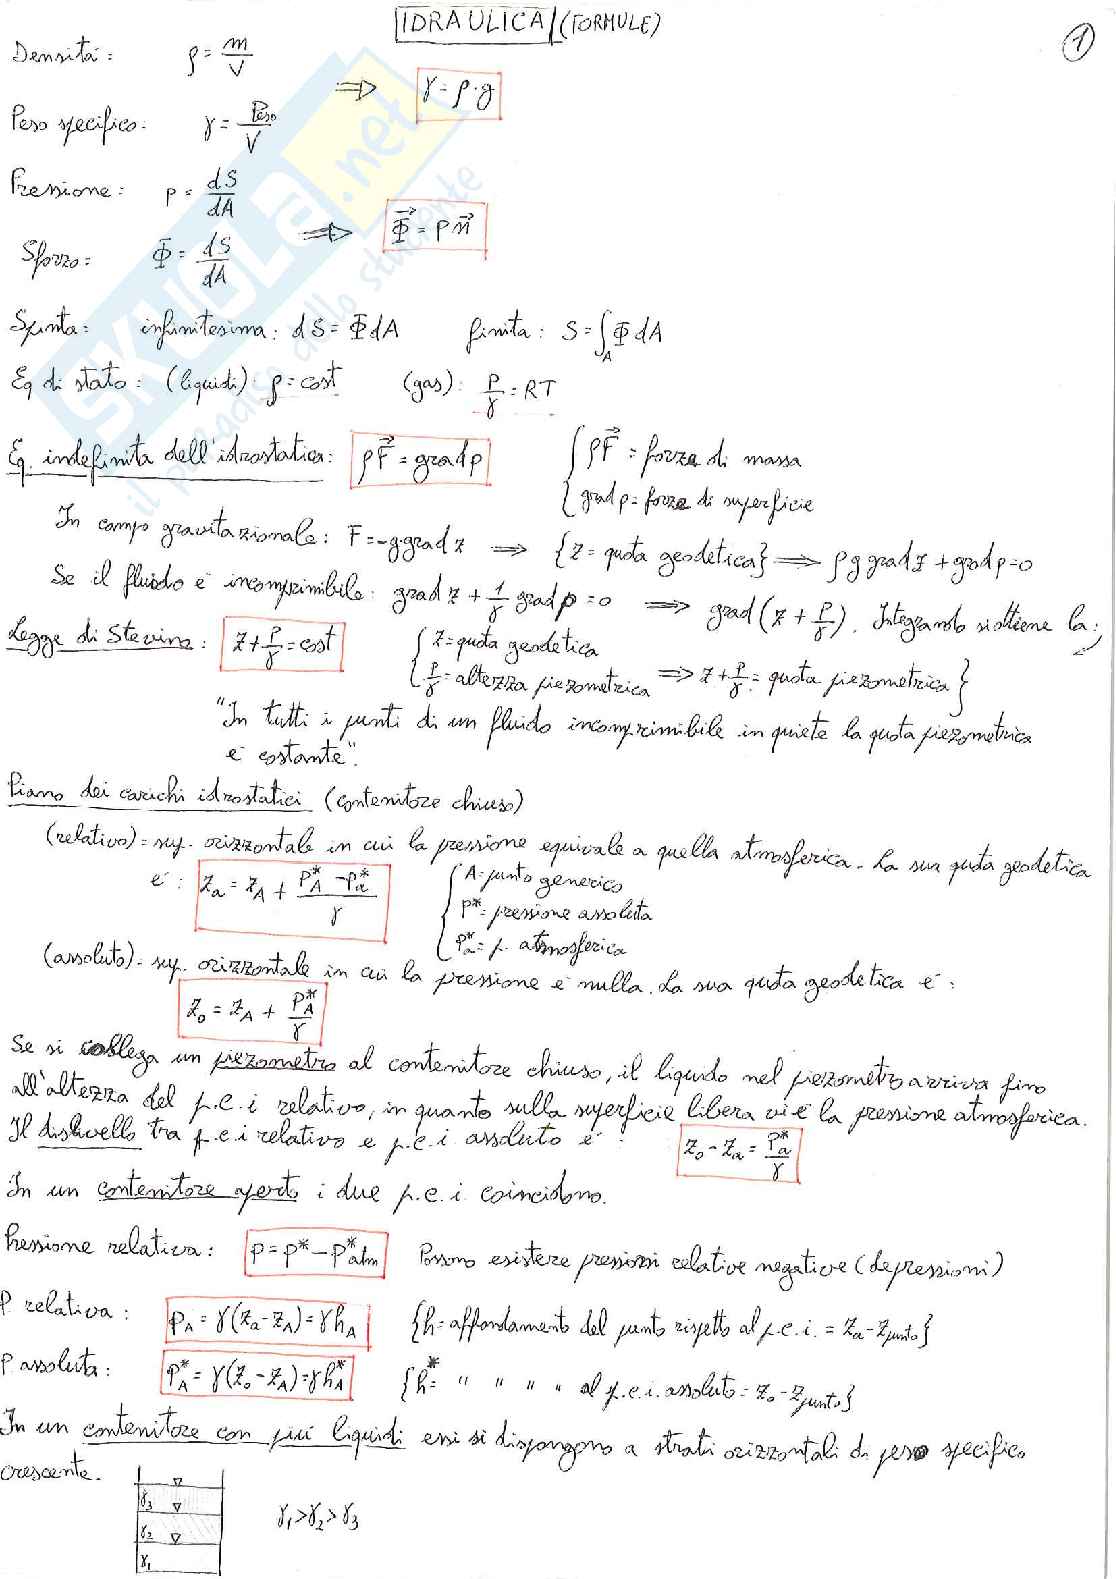 IDRAULICA (FORMULE)
1
Densità: ρ = m/V
⇒ γ = ρ·g
Peso specifico: γ = Peso/V
Pressione: p = dS/dA
⇒ Φ⃗ = p n⃗
Sforzo: Φ̄ = dS/dA
Spinta: infinitesima: dS = Φ̄dA finita: S = ∫_A Φ̄dA
Eq di stato: (liquidi): ρ = cost (gas): p/γ = RT
Eq. indefinita dell'idrostatica: ρF⃗ = grad p { ρF⃗ = forze di massa
{ grad p = forze di superficie
In campo gravitazionale: F = -g·grad z ⇒ {z = quota geodetica} ⇒ ρg grad z + grad p = 0
Se il fluido è incomprimibile: grad z + 1/γ grad p = 0 ⇒ grad(z + p/γ). Integrando si ottiene la:
Legge di Stevino: z + p/γ = cost { z = quota geodetica
{ p/γ = altezza piezometrica ⇒ z + p/γ = quota piezometrica }
"In tutti i punti di un fluido incomprimibile in quiete la quota piezometrica
è costante".
Piano dei carichi idrostatici (contenitore chiuso)
(relativo) = sup. orizzontale in cui la pressione equivale a quella atmosferica. La sua quota geodetica
è: z_a = z_A + (p*_A - p*_a)/γ { A = punto generico
p* = pressione assoluta
p*_a = p. atmosferica
(assoluto) = sup. orizzontale in cui la pressione è nulla. La sua quota geodetica è:
z_0 = z_A + p*_A/γ
Se si collega un piezometro al contenitore chiuso, il liquido nel piezometro arriva fino
all'altezza del p.c.i relativo, in quanto sulla superficie libera vi è la pressione atmosferica.
Il dislivello tra p.c.i relativo e p.c.i. assoluto è: z_0 - z_a = p*_a/γ
In un contenitore aperto i due p.c.i. coincidono.
Pressione relativa: p = p* - p*_atm Possono esistere pressioni relative negative (depressioni)
P relativa: p_A = γ(z_a - z_A) = γh_A {h = affondamento del punto rispetto al p.c.i. = z_a - z_punto}
P assoluta: p*_A = γ(z_0 - z_A) = γh*_A {h* = " " " " al p.c.i. assoluto = z_0 - z_punto}
In un contenitore con più liquidi essi si dispongono a strati orizzontali di peso specifico
crescente.
γ3
γ2
γ1
γ1 > γ2 > γ3
SKUOLA.net
il paradiso dello studente